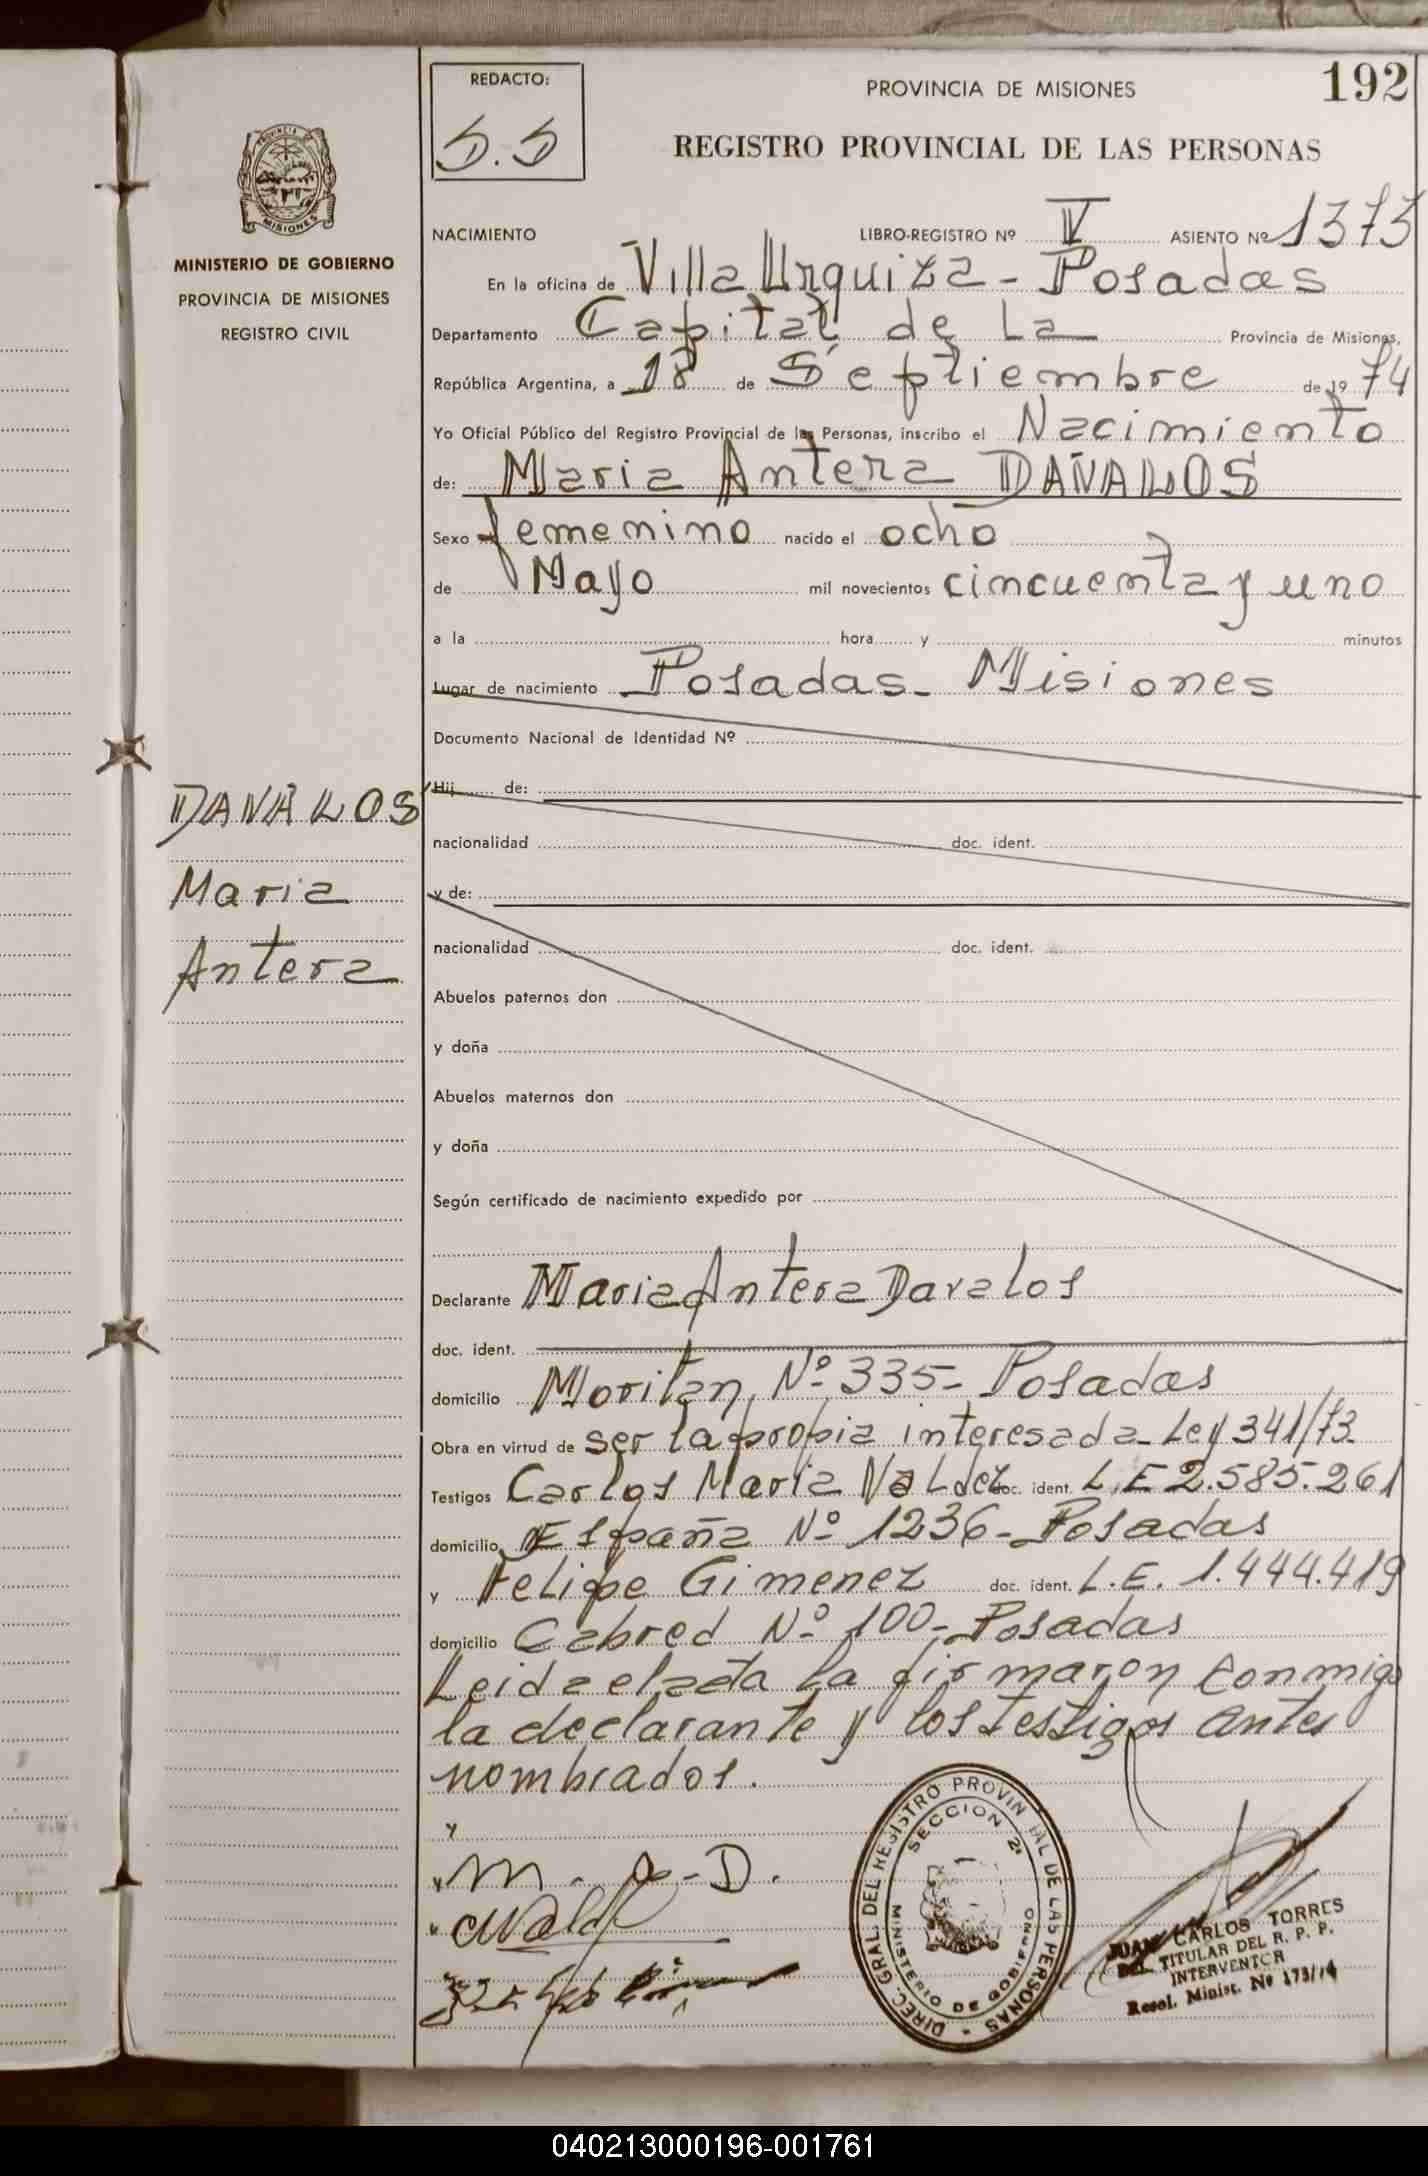 REDACTO:
S.S
PROVINCIA DE MISIONES
192
REGISTRO PROVINCIAL DE LAS PERSONAS
PROVINCIA DE
MISIONES
MINISTERIO DE GOBIERNO
PROVINCIA DE MISIONES
REGISTRO CIVIL
NACIMIENTO LIBRO-REGISTRO Nº V ASIENTO Nº 1373
En la oficina de Villa Urquiza - Posadas
Departamento Capital de La Provincia de Misiones,
República Argentina, a 18 de Septiembre de 19 74
Yo Oficial Público del Registro Provincial de las Personas, inscribo el Nacimiento
de: Maria Antera DAVALOS
Sexo femenino nacido el ocho
de Mayo mil novecientos cincuenta y uno
a la hora y minutos
Lugar de nacimiento Posadas - Misiones
Documento Nacional de Identidad Nº
Hij de:
nacionalidad doc. ident.
y de:
nacionalidad doc. ident.
Abuelos paternos don
y doña
Abuelos maternos don
y doña
Según certificado de nacimiento expedido por
DAVALOS
Maria
Antera
Declarante Maria Antera Davalos
doc. ident.
domicilio Moritan Nº 335 - Posadas
Obra en virtud de ser la propia interesada - Ley 341/73
Testigos Carlos Maria Valdez doc. ident. L.E 2.585.261
domicilio España Nº 1236 - Posadas
y Felipe Gimenez doc. ident. L.E. 1.444.419
domicilio Cabred Nº 100 - Posadas
Leida el acta la firmaron conmigo
la declarante y los testigos antes
nombrados.
y
y M. A - D.
DIREC. GRAL. DEL REGISTRO PROVIN IAL DE LAS PERSONAS -
SECCION 2ª
MINISTERIO DE GOBIERNO
JUAN CARLOS TORRES
DEL. TITULAR DEL R. P. P.
INTERVENTOR
Resol. Minist. Nº 173/74
040213000196-001761